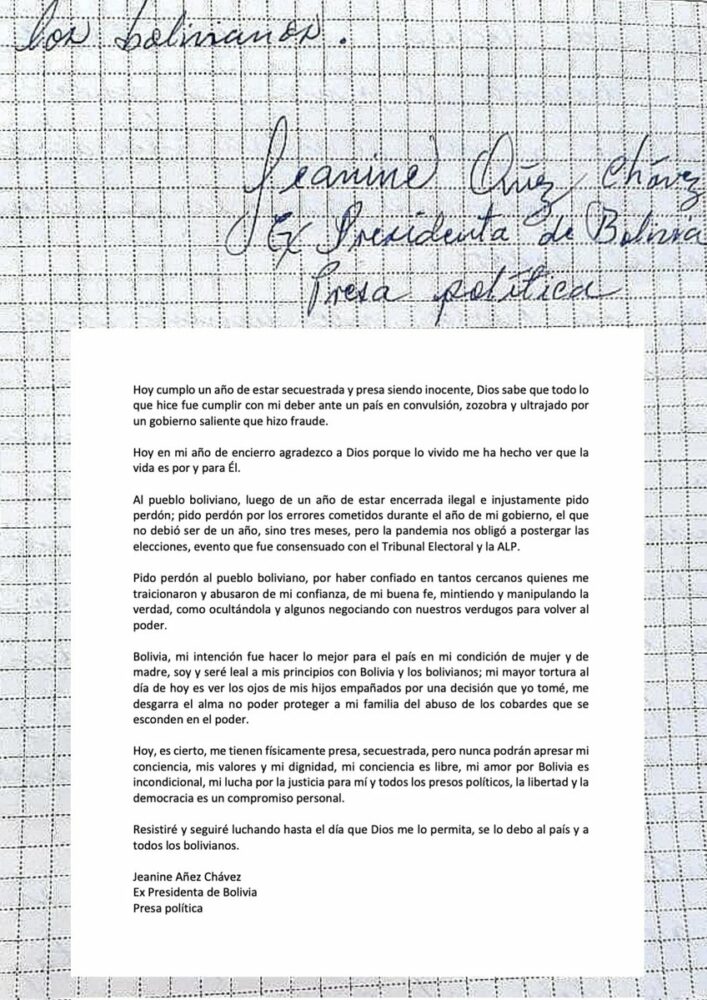 los bolivianos.
Jeanine Añez Chávez
Ex Presidenta de Bolivia
Presa política
Hoy cumplo un año de estar secuestrada y presa siendo inocente, Dios sabe que todo lo
que hice fue cumplir con mi deber ante un país en convulsión, zozobra y ultrajado por
un gobierno saliente que hizo fraude.
Hoy en mi año de encierro agradezco a Dios porque lo vivido me ha hecho ver que la
vida es por y para Él.
Al pueblo boliviano, luego de un año de estar encerrada ilegal e injustamente pido
perdón; pido perdón por los errores cometidos durante el año de mi gobierno, el que
no debió ser de un año, sino tres meses, pero la pandemia nos obligó a postergar las
elecciones, evento que fue consensuado con el Tribunal Electoral y la ALP.
Pido perdón al pueblo boliviano, por haber confiado en tantos cercanos quienes me
traicionaron y abusaron de mi confianza, de mi buena fe, mintiendo y manipulando la
verdad, como ocultándola y algunos negociando con nuestros verdugos para volver al
poder.
Bolivia, mi intención fue hacer lo mejor para el país en mi condición de mujer y de
madre, soy y seré leal a mis principios con Bolivia y los bolivianos; mi mayor tortura al
día de hoy es ver los ojos de mis hijos empañados por una decisión que yo tomé, me
desgarra el alma no poder proteger a mi familia del abuso de los cobardes que se
esconden en el poder.
Hoy, es cierto, me tienen físicamente presa, secuestrada, pero nunca podrán apresar mi
conciencia, mis valores y mi dignidad, mi conciencia es libre, mi amor por Bolivia es
incondicional, mi lucha por la justicia para mí y todos los presos políticos, la libertad y la
democracia es un compromiso personal.
Resistiré y seguiré luchando hasta el día que Dios me lo permita, se lo debo al país y a
todos los bolivianos.
Jeanine Añez Chávez
Ex Presidenta de Bolivia
Presa política